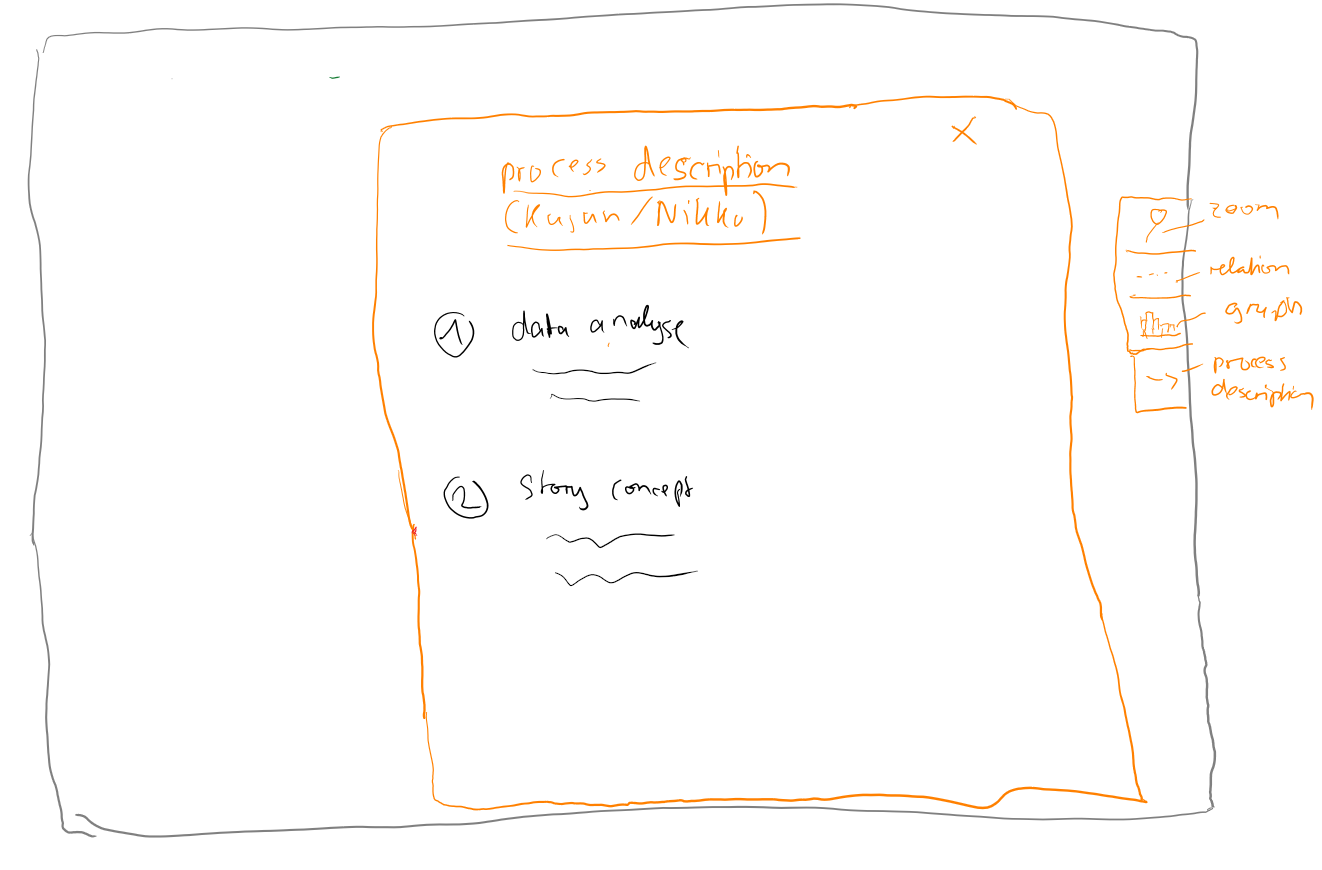 process description
(Kujun/Nikku)
1 data analyse
2 story concept
X
zoom
relation
graph
process
description